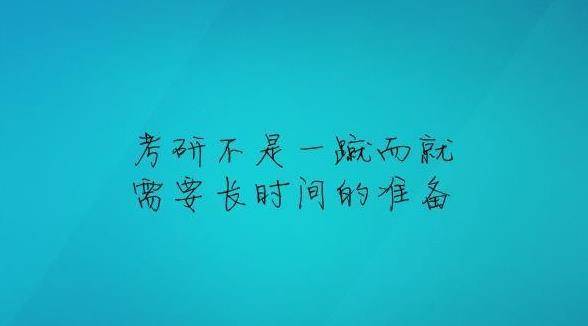 考研不是一蹴而就
需要长时间的准备